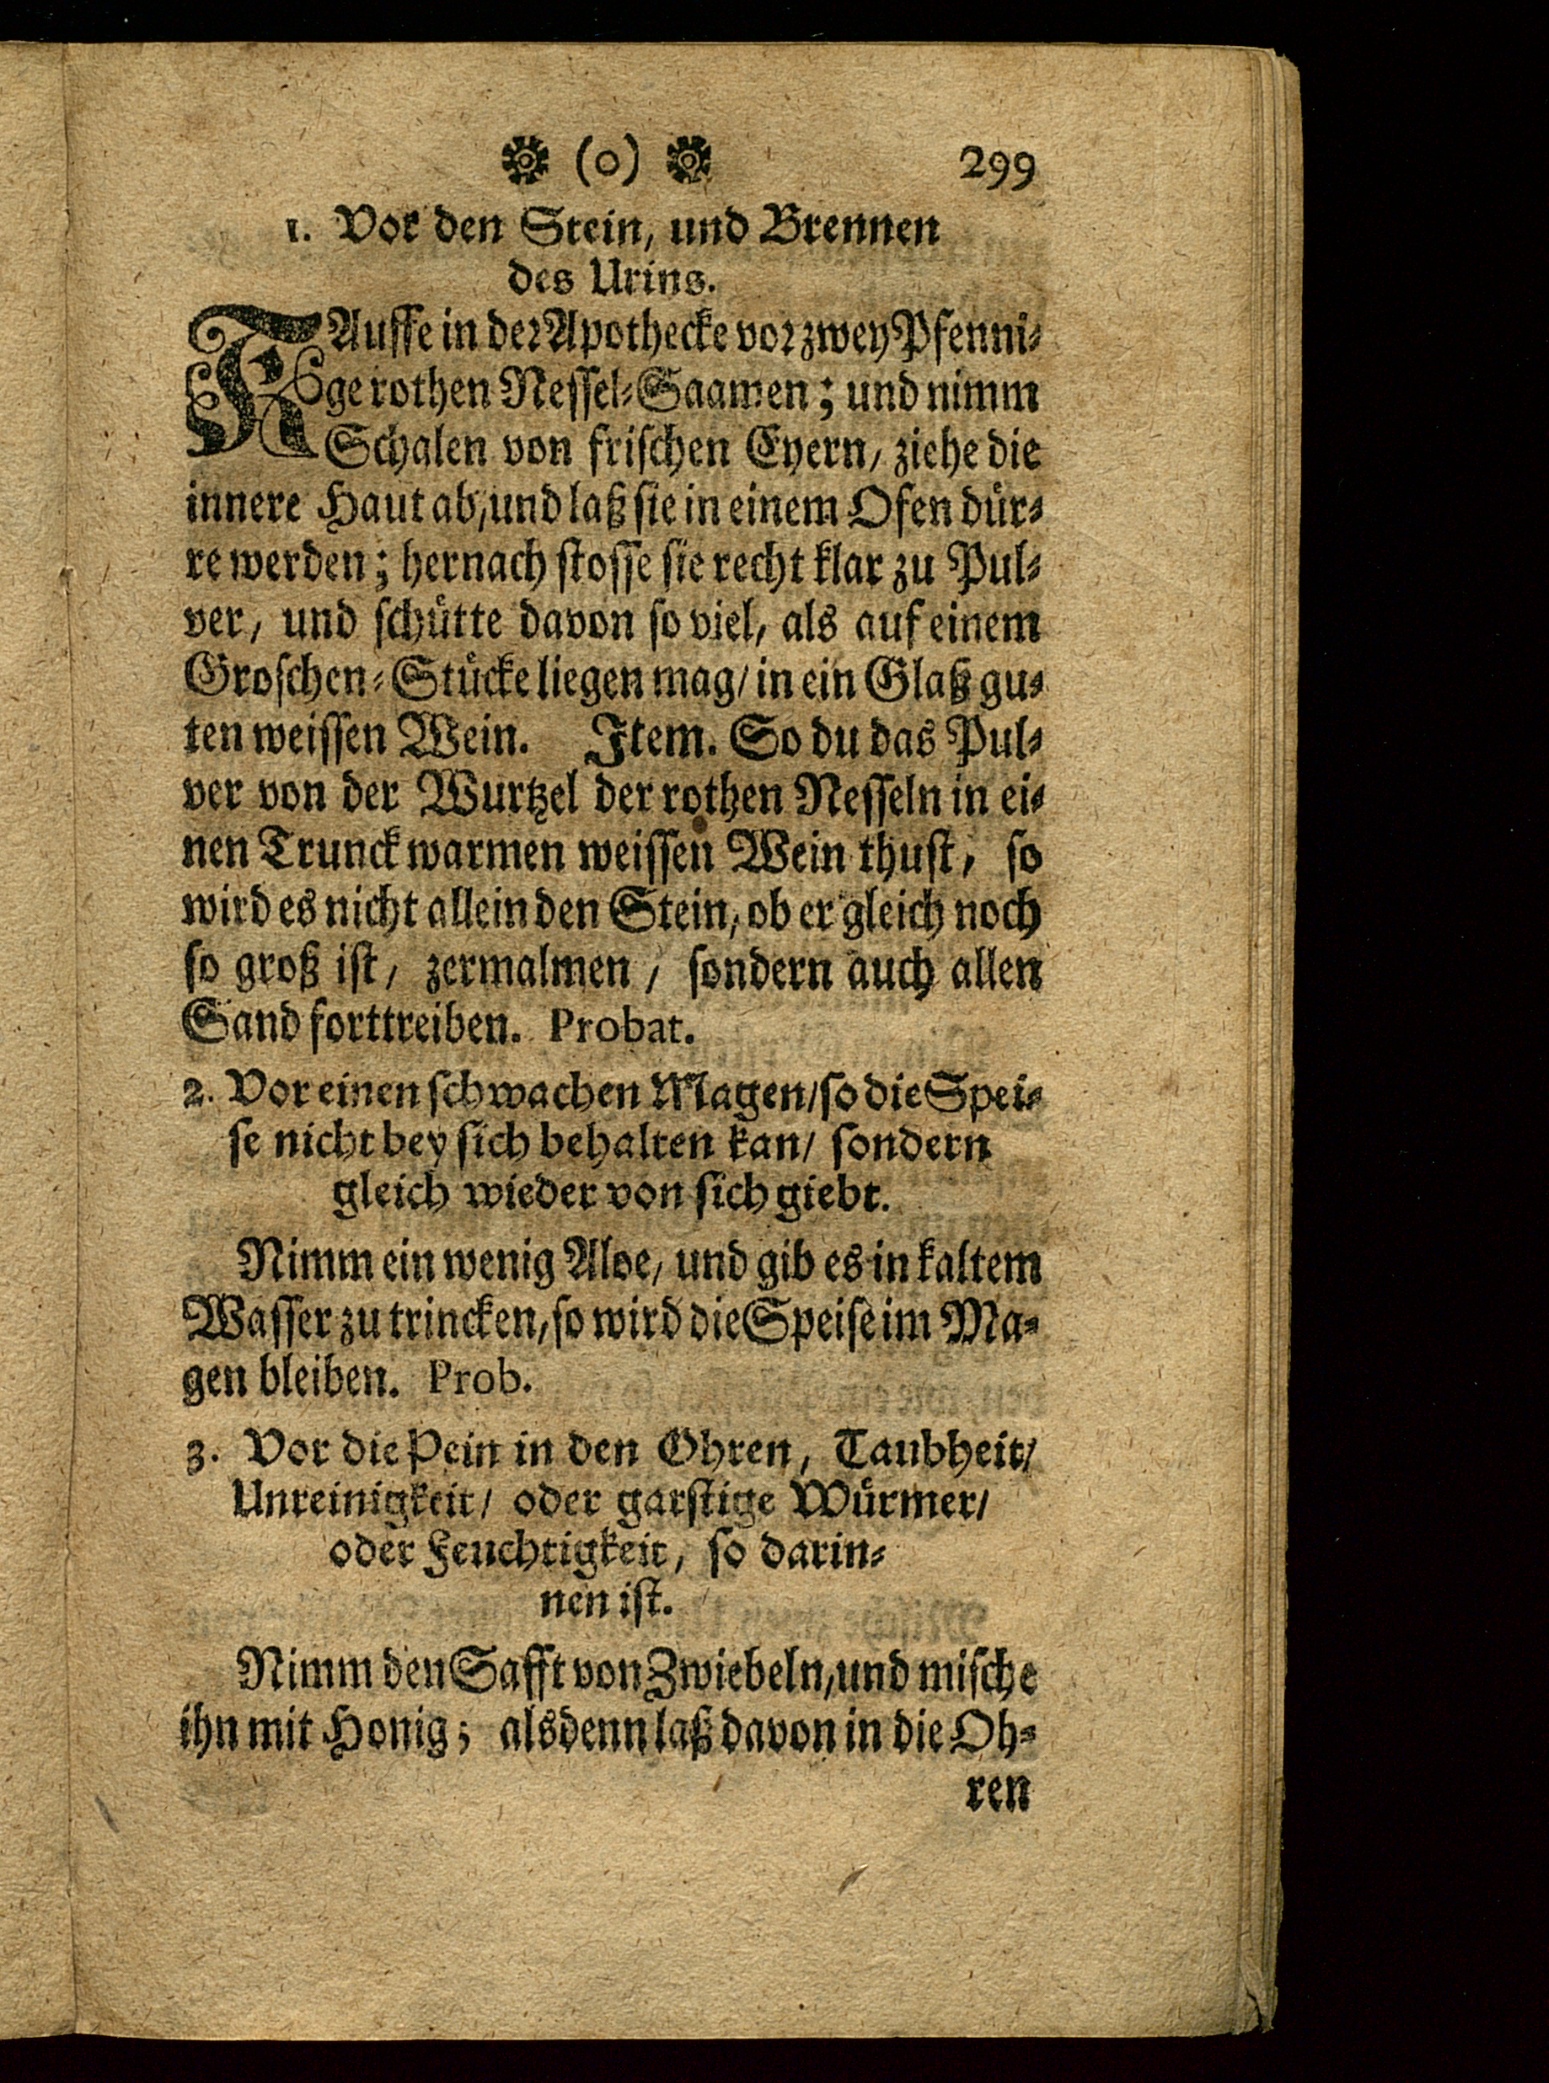 (o) 299
1. Vor den Stein, und Brennen
des Urins.
KAuffe in der Apothecke vor zwey Pfenni-
ge rothen Nessel-Saamen; und nimm
Schalen von frischen Eyern, ziehe die
innere Haut ab, und laß sie in einem Ofen dür-
re werden; hernach stosse sie recht klar zu Pul-
ver, und schütte davon so viel, als auf einem
Groschen-Stücke liegen mag/ in ein Glaß gu-
ten weissen Wein. Item. So du das Pul-
ver von der Wurtzel der rothen Nesseln in ei-
nen Trunck warmen weissen Wein thust, so
wird es nicht allein den Stein, ob er gleich noch
so groß ist, zermalmen, sondern auch allen
Sand forttreiben. Probat.
2. Vor einen schwachen Magen/ so die Spei-
se nicht bey sich behalten kan/ sondern
gleich wieder von sich giebt.
Nimm ein wenig Aloe, und gib es in kaltem
Wasser zu trincken, so wird die Speise im Ma-
gen bleiben. Prob.
3. Vor die Pein in den Ohren, Taubheit/
Unreinigkeit/ oder garstige Würmer/
oder Feuchtigkeit, so darin-
nen ist.
Nimm den Safft von Zwiebeln, und mische
ihn mit Honig; alsdenn laß davon in die Oh-
ren